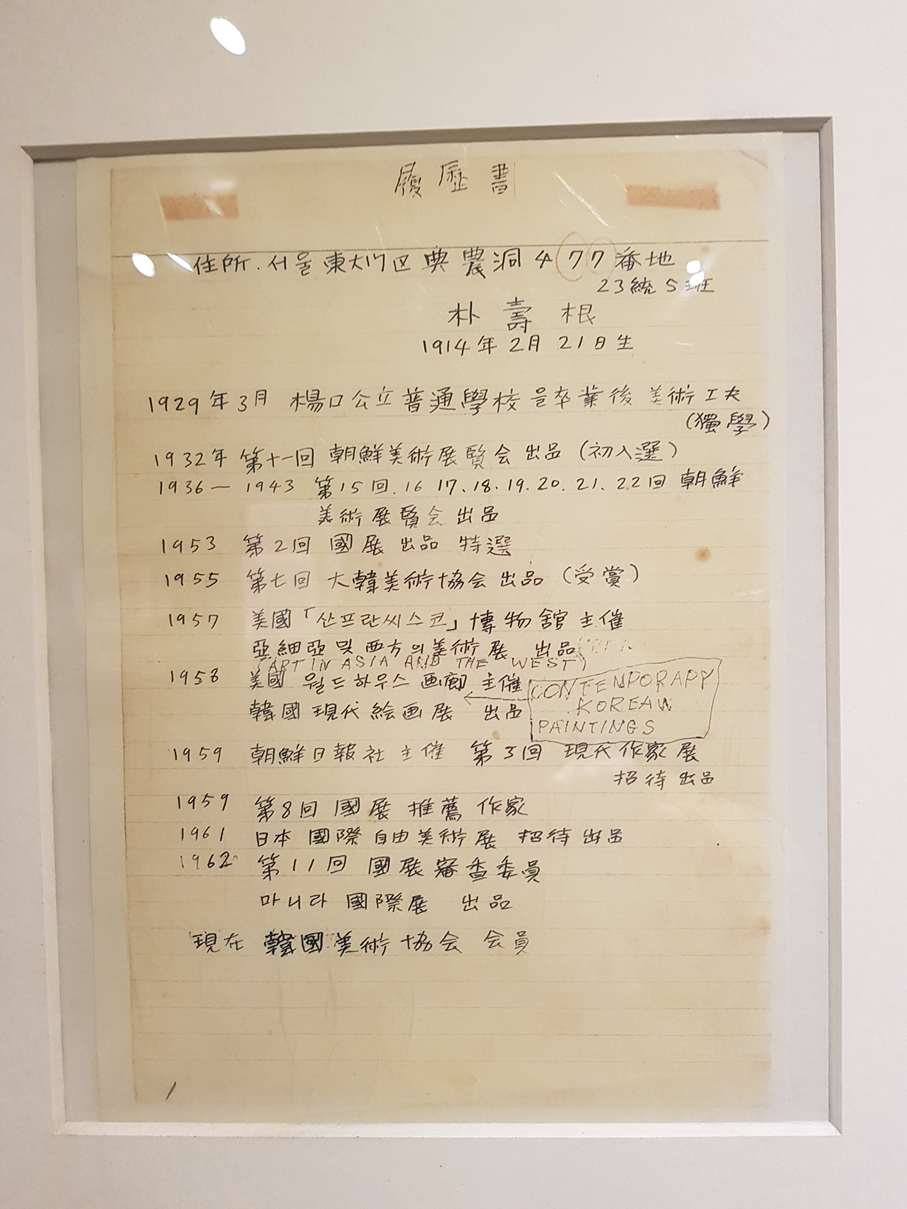 履歷書
住所. 서울 東大門区 典農洞 4 77 番地
23統 5班
朴壽根
1914年 2月 21日生
1929年 3月 楊口公立普通學校 을 卒業後 美術工夫
(獨學)
1932年 第十一回 朝鮮美術展覧会 出品 (初入選)
1936 — 1943 第15回. 16 17. 18. 19. 20. 21. 22回 朝鮮
美術展覧会 出品
1953 第2回 國展 出品 特選
1955 第七回 大韓美術協会 出品 (受賞)
1957 美國「산프란씨스코」博物館 主催
亞細亞 및 西方의 美術展 出品
(ART IN ASIA AND THE WEST)
1958 美國 월드하우스 画廊 主催
韓國 現代 絵画展 出品
CONTENPORAPY
KOREAN
PAINTINGS
1959 朝鮮日報社 主催 第3回 現代作家展
招待 出品
1959 第8回 國展 推薦 作家
1961 日本 國際 自由美術展 招待 出品
1962 第11回 國展審査委員
마니라 國際展 出品
現在 韓國美術協会 会員